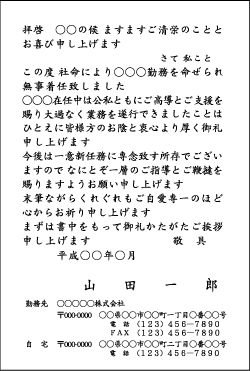 拝啓　○○の候 ますますご清栄のことと
お喜び申し上げます
さて 私こと
この度 社命により○○○勤務を命ぜられ
無事着任致しました
○○○在任中は公私ともにご高導とご支援を
賜り大過なく業務を遂行できましたことは
ひとえに皆様方のお陰と衷心より厚く御礼
申し上げます
今後は一意新任務に専念致す所存でござい
ますので なにとぞ一層のご指導とご鞭撻を
賜りますようお願い申し上げます
末筆ながらくれぐれもご自愛専一のほど
心からお祈り申し上げます
まずは書中をもって御礼かたがたご挨拶
申し上げます　　　　　敬　具
平成○○年○月
山　田　一　郎
勤務先　○○○○○株式会社
〒000-0000　○○県○○市○○町一丁目○番○○号
電　話　(123) 456-7890
FAX　(123) 456-7890
自　宅　〒000-0000　○○県○○市○○町二丁目○番○○号
電　話　(123) 456-7890